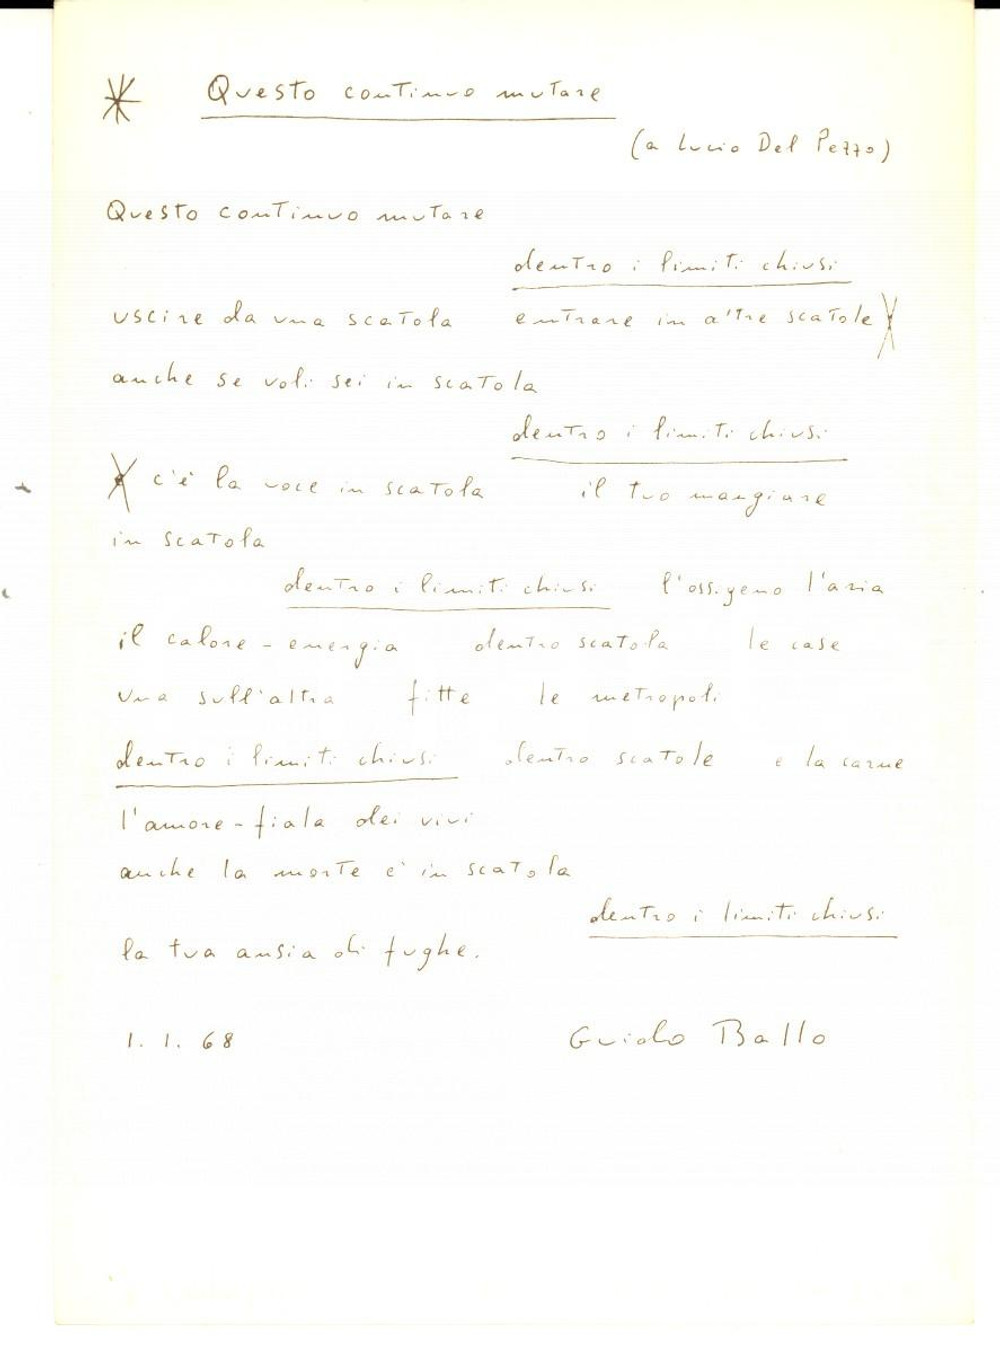 Questo continuo mutare
(a Lucio Del Pezzo)
Questo continuo mutare
dentro i limiti chiusi
uscire da una scatola entrare in altre scatole
anche se voli sei in scatola
dentro i limiti chiusi
c'è la voce in scatola il tuo mangiare
in scatola
dentro i limiti chiusi l'ossigeno l'aria
il calore - energia dentro scatola le case
una sull'altra fitte le metropoli
dentro i limiti chiusi dentro scatole e la carne
l'amore - fiala dei vivi
anche la morte è in scatola
dentro i limiti chiusi
la tua ansia di fughe.
1. 1. 68 Guido Ballo